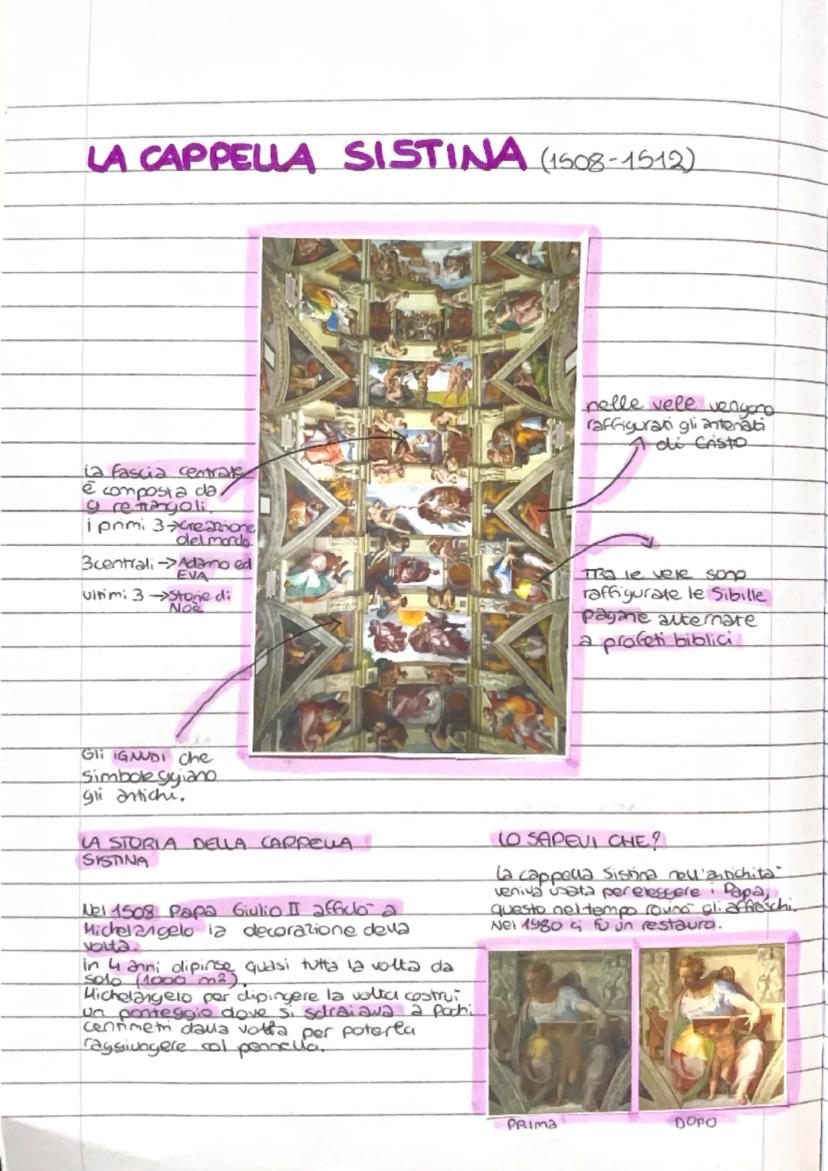 LA CAPPELLA SISTINA (1508-1512)
nelle vele vengono
raffigurati gli antenati
di Cristo
La fascia centrale
è composta da
9 rettangoli.
i primi 3→creazione
del mondo
3 centrali→Adamo ed
EVA
ultimi 3→Storie di
Noè
TRA le vele sono
raffigurate le Sibille
pagane alternate
a profeti biblici
Gli IGNUDI che
simboleggiano
gli antichi.
LA STORIA DELLA CAPPELLA
SISTINA
Nel 1508 Papa Giulio II affidò a
Michelangelo la decorazione della
volta.
In 4 anni dipinse quasi tutta la volta da
solo (1000 m²).
Michelangelo per dipingere la volta costruì
un ponteggio dove si sdraiava a pochi
centimetri dalla volta per poterla
raggiungere col pennello.
LO SAPEVI CHE?
La cappella Sistina nell'antichità
veniva usata per eleggere i Papa,
questo nel tempo rovinò gli affreschi.
Nel 1980 ci fù un restauro.
PRIMA
DOPO